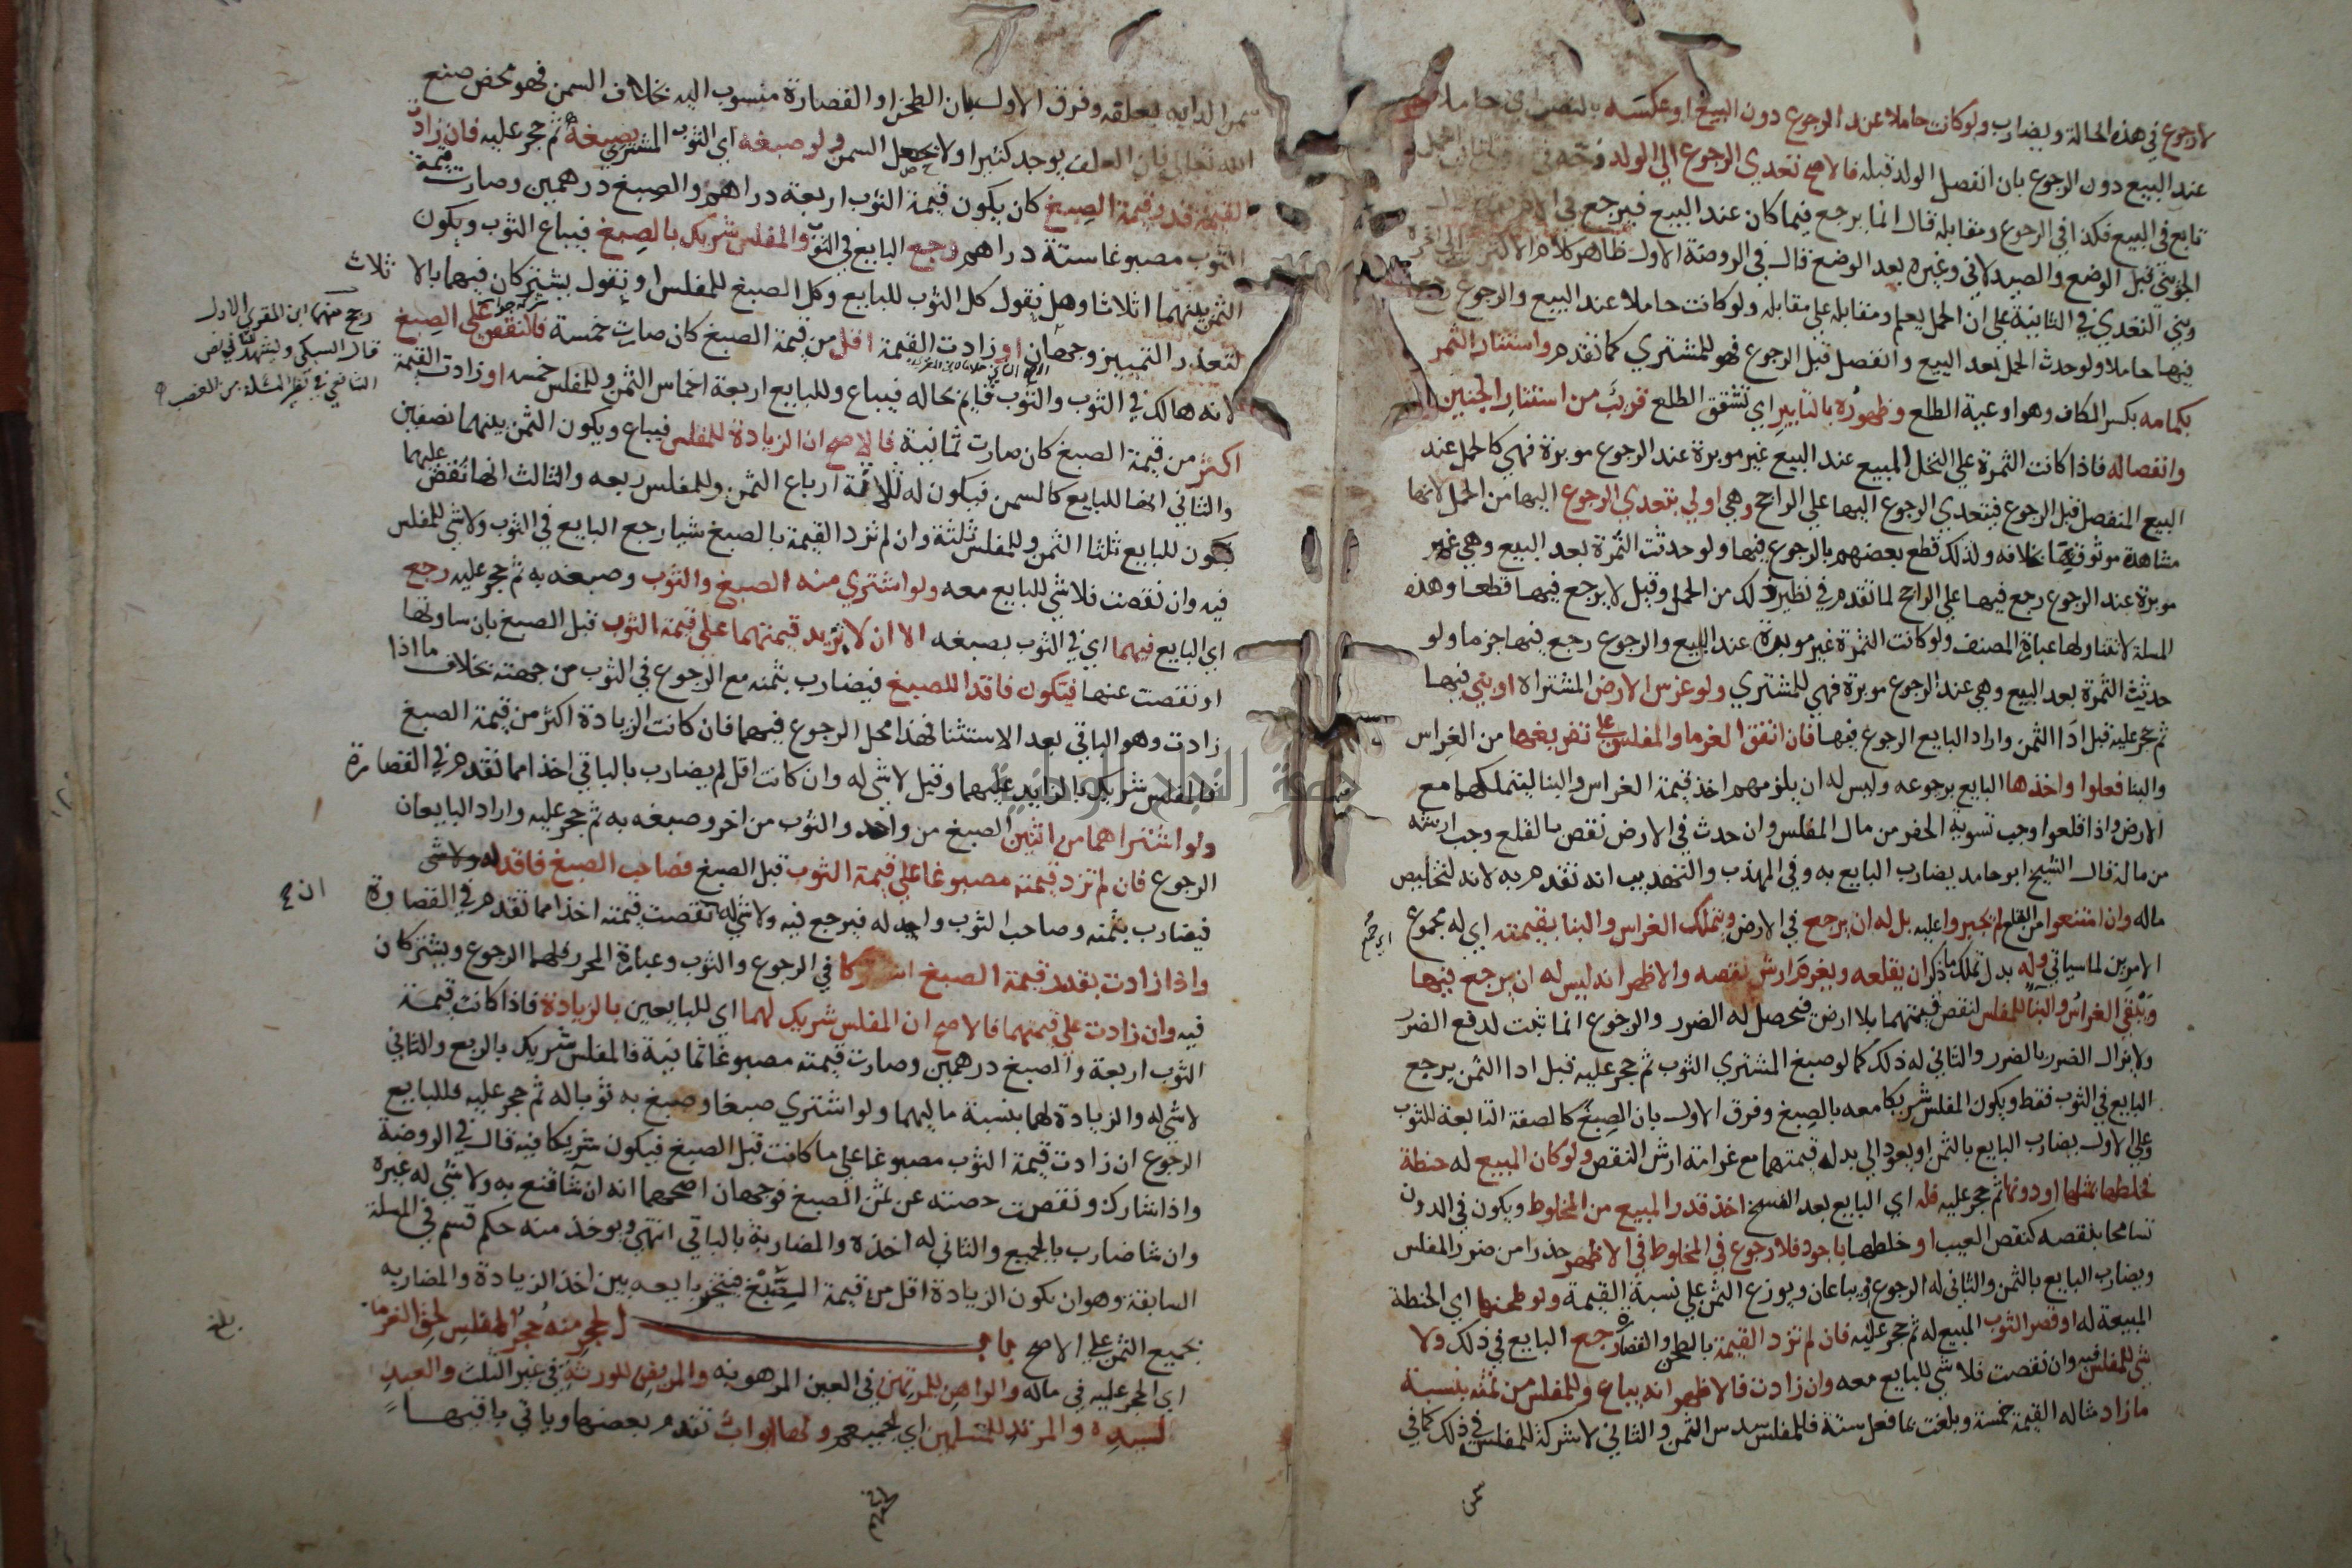 لا رجوع في هذه الحالة ويضارب ولو كانت حاملا عند الرجوع دون البيع او عكسه بالنصب اي حاملا
عند البيع دون الرجوع بان انفصل الولد قبله فالاصح تعدي الرجوع الي الولد
تابع في البيع فكذا في الرجوع ومقابله قال انما يرجع فيما كان عند البيع فيرجع في
الجويني قبل الوضع والصيدلاني وغيره بعد الوضع قال في الروضة الاول ظاهر كلام الاكثرين
وبني التعدي في الثانية علي ان الحمل يعلم ومقابله علي مقابله ولو كانت حاملا عند البيع والرجوع رجع
فيها حاملا ولو حدث الحمل بعد البيع وانفصل قبل الرجوع فهو للمشتري كما تقدم واستتار الثمر
بكمامه بكسر الكاف وهو اوعية الطلع وظهوره بالتابير اي تشقق الطلع قريب من استتار الجنين
وانفصاله فاذا كانت الثمرة علي النخل المبيع عند البيع غير موبرة عند الرجوع موبرة فهي كالحمل عند
البيع المنفصل قبل الرجوع فيتعدي الرجوع اليها علي الراجح وهي اولي بتعدي الرجوع اليها من الحمل لانها
مشاهدة موثوق بها بخلافه ولذلك قطع بعضهم بالرجوع فيها ولو حدثت الثمرة بعد البيع وهي غير
موبرة عند الرجوع رجع فيها علي الراجح لما تقدم في نظير ذلك من الحمل وقيل لا يرجع فيها قطعا وهذه
المسلة لا تتناولها عبارة المصنف ولو كانت الثمرة غير موبرة عند البيع والرجوع رجع فيها جزما ولو
حدثت الثمرة بعد البيع وهي عند الرجوع موبرة فهي للمشتري ولو غرس الارض المشتراه او بني فيها
ثم حجر عليه قبل ادا الثمن واراد البايع الرجوع فيها فان اتفق الغرما والمفلس علي تفريغها من الغراس
والبنا فعلوا واخذها البايع برجوعه وليس له ان يلزمهم اخذ قيمة الغراس والبنا ليتملكهما مع
الارض واذا قلعوا وجب تسوية الحفر من مال المفلس وان حدث في الارض نقص بالقلع وجب ارشه
من ماله قال الشيخ ابو حامد يضارب البايع به وفي المهذب والتهذيب انه تقدم به لانه لتخليص
ماله وان امتنعوا من القلع لم يجبروا عليه بل له ان يرجع في الارض ويتملك الغراس والبنا بقيمته اي له مجموع
الامرين لما سياتي وله بدل تملك ما ذكر ان يقلعه ويغرم ارش نقصه والاظهر انه ليس له ان يرجع فيها
ويبقي الغراس والبنا للمفلس لنقص قيمتهما بلا ارض فيحصل له الضرر والرجوع انما ثبت لدفع الضرر
ولا يزال الضرر بالضرر والثاني له ذلك كما لو صبغ المشتري الثوب ثم حجر عليه قبل ادا الثمن يرجع
البايع في الثوب فقط ويكون المفلس شريكا معه بالصبغ وفرق الاول بان الصبغ كالصفة التابعة للثوب
وعلي الاول يضارب البايع بالثمن او يعود الي بدل قيمتهما مع غرامة ارش النقص ولو كان المبيع له حنطة
فخلطها بمثلها او دونها ثم حجر عليه فله اي البايع بعد الفسخ اخذ قدر المبيع من المخلوط ويكون في الدون
تسامحا بنقصه كنقص العيب او خلطها باجود فلا رجوع في المخلوط في الاظهر حذرا من ضرر المفلس
ويضارب البايع بالثمن والثاني له الرجوع فيباعان ويوزع الثمن علي نسبة القيمة ولو طحنها اي الحنطة
المبيعة له او قصر الثوب المبيع له ثم حجر عليه فان لم تزد القيمة بالطحن والقصارة رجع البايع في ذلك ولا
شي للمفلس فيه وان نقصت فلا شي للبايع معه وان زادت فالاظهر انه يباع وللمفلس من ثمنه بنسبة
ما زاد مثاله القيمة خمسة وبلغت بما فعل ستة فللمفلس سدس الثمن والثاني لا شركة للمفلس في ذلك كما في
سمن
سمن الدابة بعلفه وفرق الاول بان الطحن او القصارة منسوب اليه بخلاف السمن فهو محض صنع
الله تعالي فان العلف يوجد كثيرا ولا يحصل السمن ولو صبغه اي الثوب المشتري بصبغه ثم حجر عليه فان زادت
القيمة قدر قيمة الصبغ كان يكون قيمة الثوب اربعة دراهم والصبغ درهمين وصارت قيمة
الثوب مصبوغا ستة دراهم رجع البايع في الثوب والمفلس شريك بالصبغ فيباع الثوب ويكون
الثمن بينهما اثلاثا وهل نقول كل الثوب للبايع وكل الصبغ للمفلس او نقول يشتركان فيهما بالاثلاث
لتعذر التمييز وجهان او زادت القيمة اقل من قيمة الصبغ كان صارت خمسة فالنقص علي الصبغ
لانه هالك في الثوب والثوب قايم بحاله فيباع وللبايع اربعة اخماس الثمن وللمفلس خمسه او زادت القيمة
اكثر من قيمة الصبغ كان صارت ثمانية فالاصح ان الزيادة للمفلس فيباع ويكون الثمن بينهما نصفين
والثاني انها للبايع كالسمن فيكون له ثلاثة ارباع الثمن وللمفلس ربعه والثالث انها تفض عليهما
يكون للبايع ثلثا الثمن وللمفلس ثلثه وان لم تزد القيمة بالصبغ شيا رجع البايع في الثوب ولا شي للمفلس
فيه وان نقصت فلا شي للبايع معه ولو اشتري منه الصبغ والثوب وصبغه به ثم حجر عليه رجع
اي البايع فيهما اي في الثوب بصبغه الا ان لا يزيد قيمتهما علي قيمة الثوب قبل الصبغ بان ساوتها
او نقصت عنها فيكون فاقدا للصبغ فيضارب بثمنه مع الرجوع في الثوب من جهته بخلاف ما اذا
زادت وهو الباقي بعد الاستثنا فهذا محل الرجوع فيهما فان كانت الزيادة اكثر من قيمة الصبغ
فالمفلس شريك بالزايد عليهما وقيل لا شي له وان كانت اقل لم يضارب بالباقي اخذا مما تقدم في القصارة
ولو اشتراهما من اثنين الصبغ من واحد والثوب من اخر وصبغه به ثم حجر عليه واراد البايعان
الرجوع فان لم تزد قيمته مصبوغا علي قيمة الثوب قبل الصبغ فصاحب الصبغ فاقد له
فيضارب بثمنه وصاحب الثوب واجد له فيرجع فيه ولا شي له ان نقصت قيمته اخذا مما تقدم في القصارة
واذا زادت بقدر قيمة الصبغ اشتركا في الرجوع والثوب وعبارة المحرر فلهما الرجوع ويشتركان
فيه وان زادت علي قيمتهما فالاصح ان المفلس شريك لهما اي للبايعين بالزيادة فاذا كانت قيمة
الثوب اربعة والصبغ درهمين وصارت قيمته مصبوغا ثمانية فالمفلس شريك بالربع والثاني
لا شي له والزيادة لهما بنسبة ماليهما ولو اشتري صبغا وصبغ به ثوبا له ثم حجر عليه فللبايع
الرجوع ان زادت قيمة الثوب مصبوغا علي ما كانت قبل الصبغ فيكون شريكا فيه قال في الروضة
واذا شارك ونقصت حصته عن ثمن الصبغ فوجهان اصحهما انه ان شا قنع به ولا شي له غيره
وان شا ضارب بالجميع والثاني له اخذه والمضاربة بالباقي انتهي ويوخذ منه حكم قسم في المسلة
السابقة وهو ان يكون الزيادة اقل من قيمة الصبغ فيتخير بايعه بين اخذ الزيادة والمضاربه
بجميع الثمن علي الاصح باب الحجر منه حجر المفلس لحق الغرما
اي الحجر عليه في ماله والراهن للمرتهن في العين المرهونه والمريض للورثة في غير الثلث والعبد
لسيده والمرتد للمسلمين اي لجميعهم ولها ابواب تقدم بعضها وباقي باقيها
رجح منهما ابن المقري الاول
قال السبكي ويشهد له نص
الشافعي في نظير المسلة من الغصب
ان صح
بلغ
جامعة النجاح الوطنية